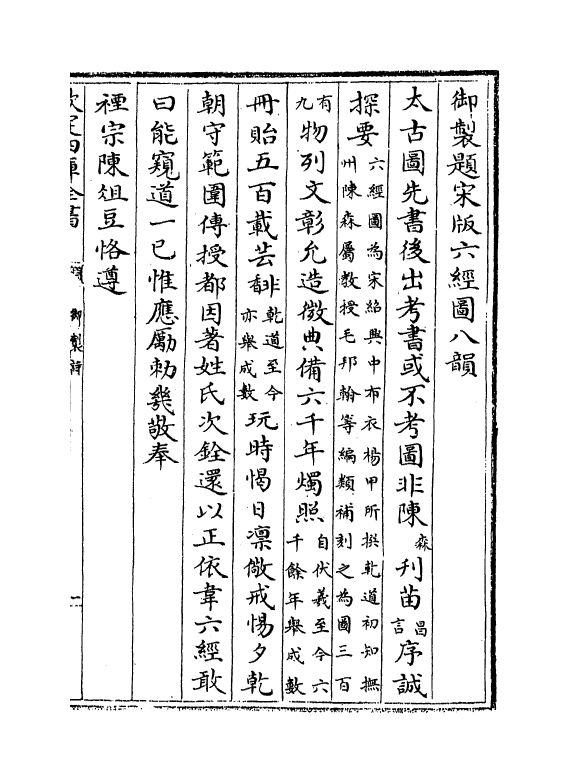 御製題宋版六經圖八韻
太古圖先書後出考書或不考圖非陳森刋苗昌言序誠
探要六經圖為宋紹興中布衣楊甲所撰乾道初知撫州陳森屬教授毛邦翰等編類補刻之為圖三百
有九物列文彰允造微典備六千年燭照自伏羲至今六千餘年舉成數
冊貽五百載芸馡乾道至今亦舉成數玩時愒日凛儆戒惕夕乾
朝守範圍傳授都因著姓氏次銓還以正依韋六經敢
曰能窺道一已惟應勵勅幾敬奉
禋宗陳俎豆恪遵
欽定四庫全書
御製詩
一